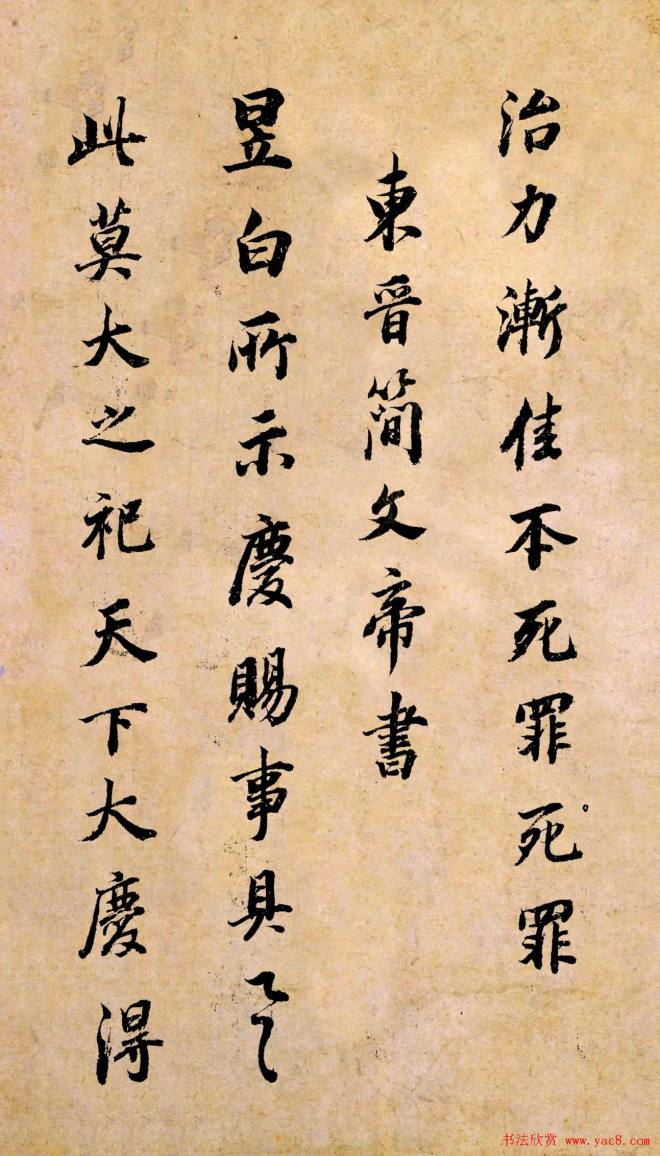 治力漸佳不死罪死罪
東晉簡文帝書
昱白所示慶賜事具
此莫大之祀天下大慶得
书法欣赏 www.yac8.com